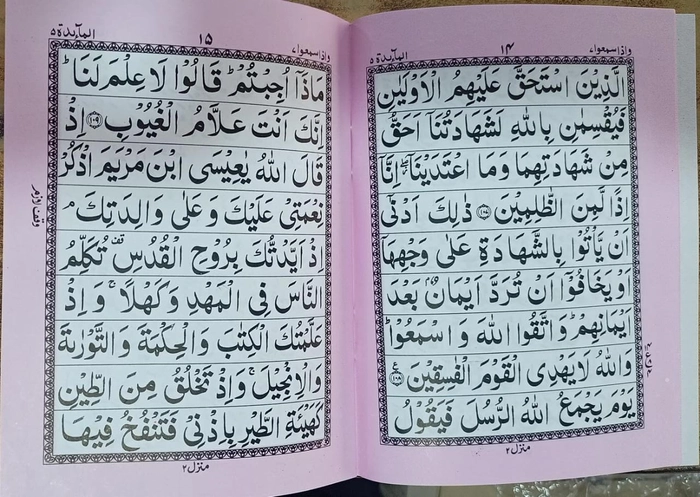 واذاسمعوا٧ ١٤ المآىدة٥
الَّذِيْنَ اسْتَحَقَّ عَلَيْهِمُ الْاَوْلَيٰنِ
فَيُقْسِمٰنِ بِاللّٰهِ لَشَهَادَتُنَاۤ اَحَقُّ
مِنْ شَهَادَتِهِمَا وَمَا اعْتَدَيْنَاۤ ۖ اِنَّاۤ
اِذًا لَّمِنَ الظّٰلِمِيْنَ ﴿۱۰۷﴾ ذٰلِكَ اَدْنٰۤى
اَنْ يَّاْتُوْا بِالشَّهَادَةِ عَلٰى وَجْهِهَاۤ
اَوْ يَخَافُوْۤا اَنْ تُرَدَّ اَيْمَانٌۢ بَعْدَ
اَيْمَانِهِمْ ؕ وَاتَّقُوا اللّٰهَ وَاسْمَعُوْا ؕ
وَاللّٰهُ لَا يَهْدِى الْقَوْمَ الْفٰسِقِيْنَ ﴿۱۰۸﴾ ع
يَوْمَ يَجْمَعُ اللّٰهُ الرُّسُلَ فَيَقُوْلُ
منزل٢
واذاسمعوا٧ ١٥ المآىدة٥
مَاذَاۤ اُجِبْتُمْ ؕ قَالُوْا لَا عِلْمَ لَنَا ؕ
اِنَّكَ اَنْتَ عَلَّامُ الْغُيُوْبِ ﴿۱۰۹﴾ اِذْ
قَالَ اللّٰهُ يٰعِيْسَى ابْنَ مَرْيَمَ اذْكُرْ
نِعْمَتِىْ عَلَيْكَ وَعَلٰى وَالِدَتِكَ ۘ
وقف لازم
اِذْ اَيَّدْتُّكَ بِرُوْحِ الْقُدُسِ قف تُكَلِّمُ
النَّاسَ فِى الْمَهْدِ وَكَهْلًا ۚ وَاِذْ
عَلَّمْتُكَ الْكِتٰبَ وَالْحِكْمَةَ وَالتَّوْرٰىةَ
وَالْاِنْجِيْلَ ۚ وَاِذْ تَخْلُقُ مِنَ الطِّيْنِ
كَهَيْئَةِ الطَّيْرِ بِاِذْنِىْ فَتَنْفُخُ فِيْهَا
منزل٢